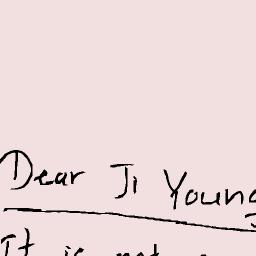 Dear Ji Young
It is not